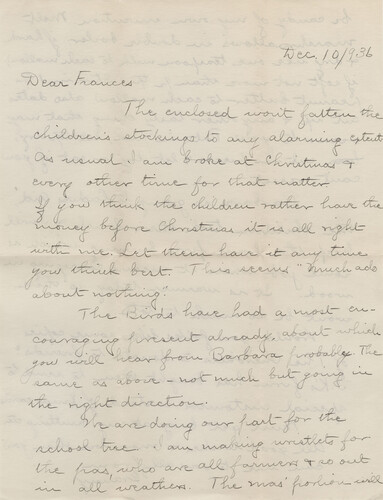 Dec. 10/1936
Dear Frances
The enclosed won't fatten the
children's stockings to any alarming extent
As usual I am broke at Christmas &
every other time for that matter
If you think the children rather have the
money before Christmas it is all right
with me. Let them have it any time
you think best. This seems "Much ado
about nothing".
The Birds have had a most en-
couraging present already, about which
you will hear from Barbara probably. The
same as above - not much but going in
the right direction.
We are doing our part for the
school tree. I am making wristlets for
the pas, who are all farmers & so out
in all weathers. The mas' portion will